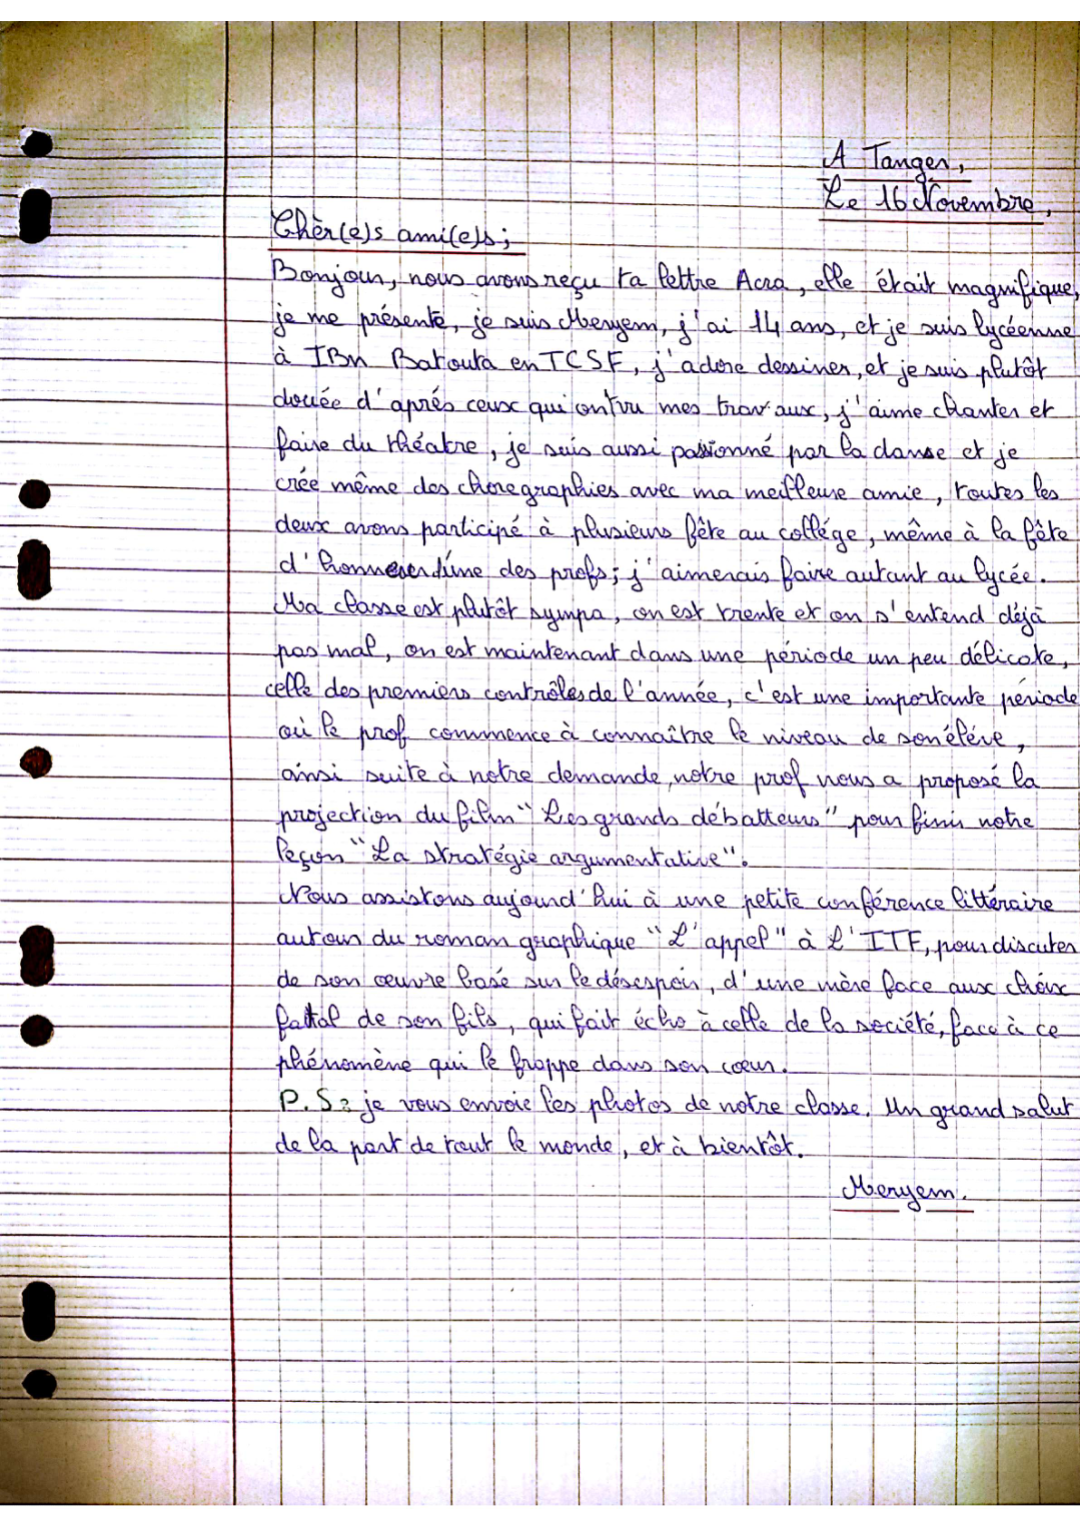 A Tanger,
Le 16 Novembre,
Chèr(e)s ami(e)s;
Bonjour, nous avons reçu ta lettre Acra, elle était magnifique,
je me présente, je suis Meryem, j'ai 14 ans, et je suis lycéenne
à IBn Batouta en TCSF, j'adore dessiner, et je suis plutôt
douée d'aprés ceux qui ont vu mes travaux, j'aime chanter et
faire du théatre, je suis aussi passionné par la danse et je
crée même des choregraphies avec ma meilleure amie, toutes les
deux avons participé à plusieurs fête au collége, même à la fête
d' des profs; j'aimerais faire autant au lycée.
Ma classe est plutôt sympa, on est trente et on s'entend déjà
pas mal, on est maintenant dans une période un peu délicate,
celle des premiers contrôles de l'année, c'est une importante période
où le prof commence à connaître le niveau de son éléve,
ainsi suite à notre demande, notre prof nous a proposé la
projection du film "Les grands débatteurs" pour finir notre
leçon "La stratégie argumentative".
Nous assistons aujourd'hui à une petite conférence littéraire
autour du roman graphique "L'appel" à L'ITF, pour discuter
de son œuvre basé sur le désespoir, d'une mère face aux choix
fatal de son fils, qui fait écho à celle de la société, face à ce
phénomène qui le frappe dans son cœur.
P.S: je vous envoie les photos de notre classe. Un grand salut
de la part de tout le monde, et à bientôt.
Meryem.